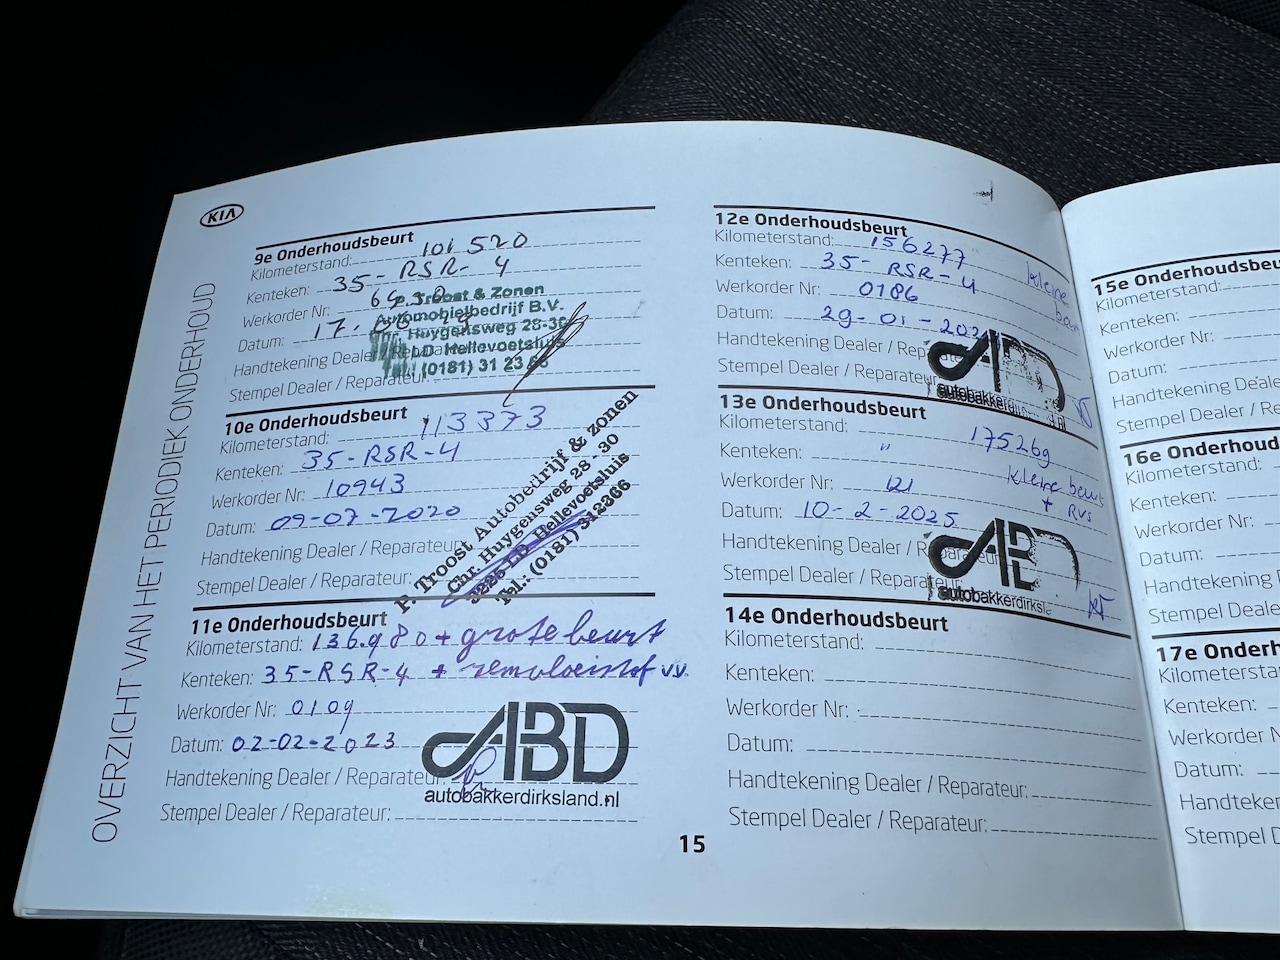 KIA
OVERZICHT VAN HET PERIODIEK ONDERHOUD
9e Onderhoudsbeurt
Kilometerstand: 101 520
Kenteken: 35-RSR-4
Werkorder Nr:
Datum: 17-
Handtekening Dealer
Stempel Dealer / Reparateur:
P. Troost & Zonen
Automobielbedrijf B.V.
Chr. Huygensweg 28-30
LD Hellevoetsluis
Tel. (0181) 31 23 66
10e Onderhoudsbeurt
Kilometerstand: 113373
Kenteken: 35-RSR-4
Werkorder Nr: 10943
Datum: 09-07-2020
Handtekening Dealer / Reparateur:
Stempel Dealer / Reparateur:
P. Troost Autobedrijf & zonen
Chr. Huygensweg 28 - 30
3225 LD Hellevoetsluis
Tel.: (0181) 312366
11e Onderhoudsbeurt
Kilometerstand: 136.980 + grote beurt
Kenteken: 35-RSR-4 + remvloeistof vv.
Werkorder Nr: 0109
Datum: 02-02-2023
Handtekening Dealer / Reparateur:
Stempel Dealer / Reparateur:
ABD
autobakkerdirksland.nl
12e Onderhoudsbeurt
Kilometerstand: 156277
Kenteken: 35-RSR-4 kleine
Werkorder Nr: 0186 beurt
Datum: 29-01-202
Handtekening Dealer / Reparateur
Stempel Dealer / Reparateur
ABD
autobakkerdi
13e Onderhoudsbeurt
Kilometerstand: 175269
Kenteken: " kleine beurt
Werkorder Nr: 121 + RVS
Datum: 10-2-2025
Handtekening Dealer / Reparateur:
Stempel Dealer / Reparateur:
ABD
autobakkerdirksla
14e Onderhoudsbeurt
Kilometerstand:
Kenteken:
Werkorder Nr:
Datum:
Handtekening Dealer / Reparateur:
Stempel Dealer / Reparateur:
15
15e Onderhoudsbeu
Kilometerstand:
Kenteken:
Werkorder Nr:
Datum:
Handtekening Deale
Stempel Dealer / R
16e Onderhoud
Kilometerstand:
Kenteken:
Werkorder Nr:
Datum:
Handtekening D
Stempel Deale
17e Onderh
Kilometersta
Kenteken:
Werkorder N
Datum:
Handteke
Stempel D